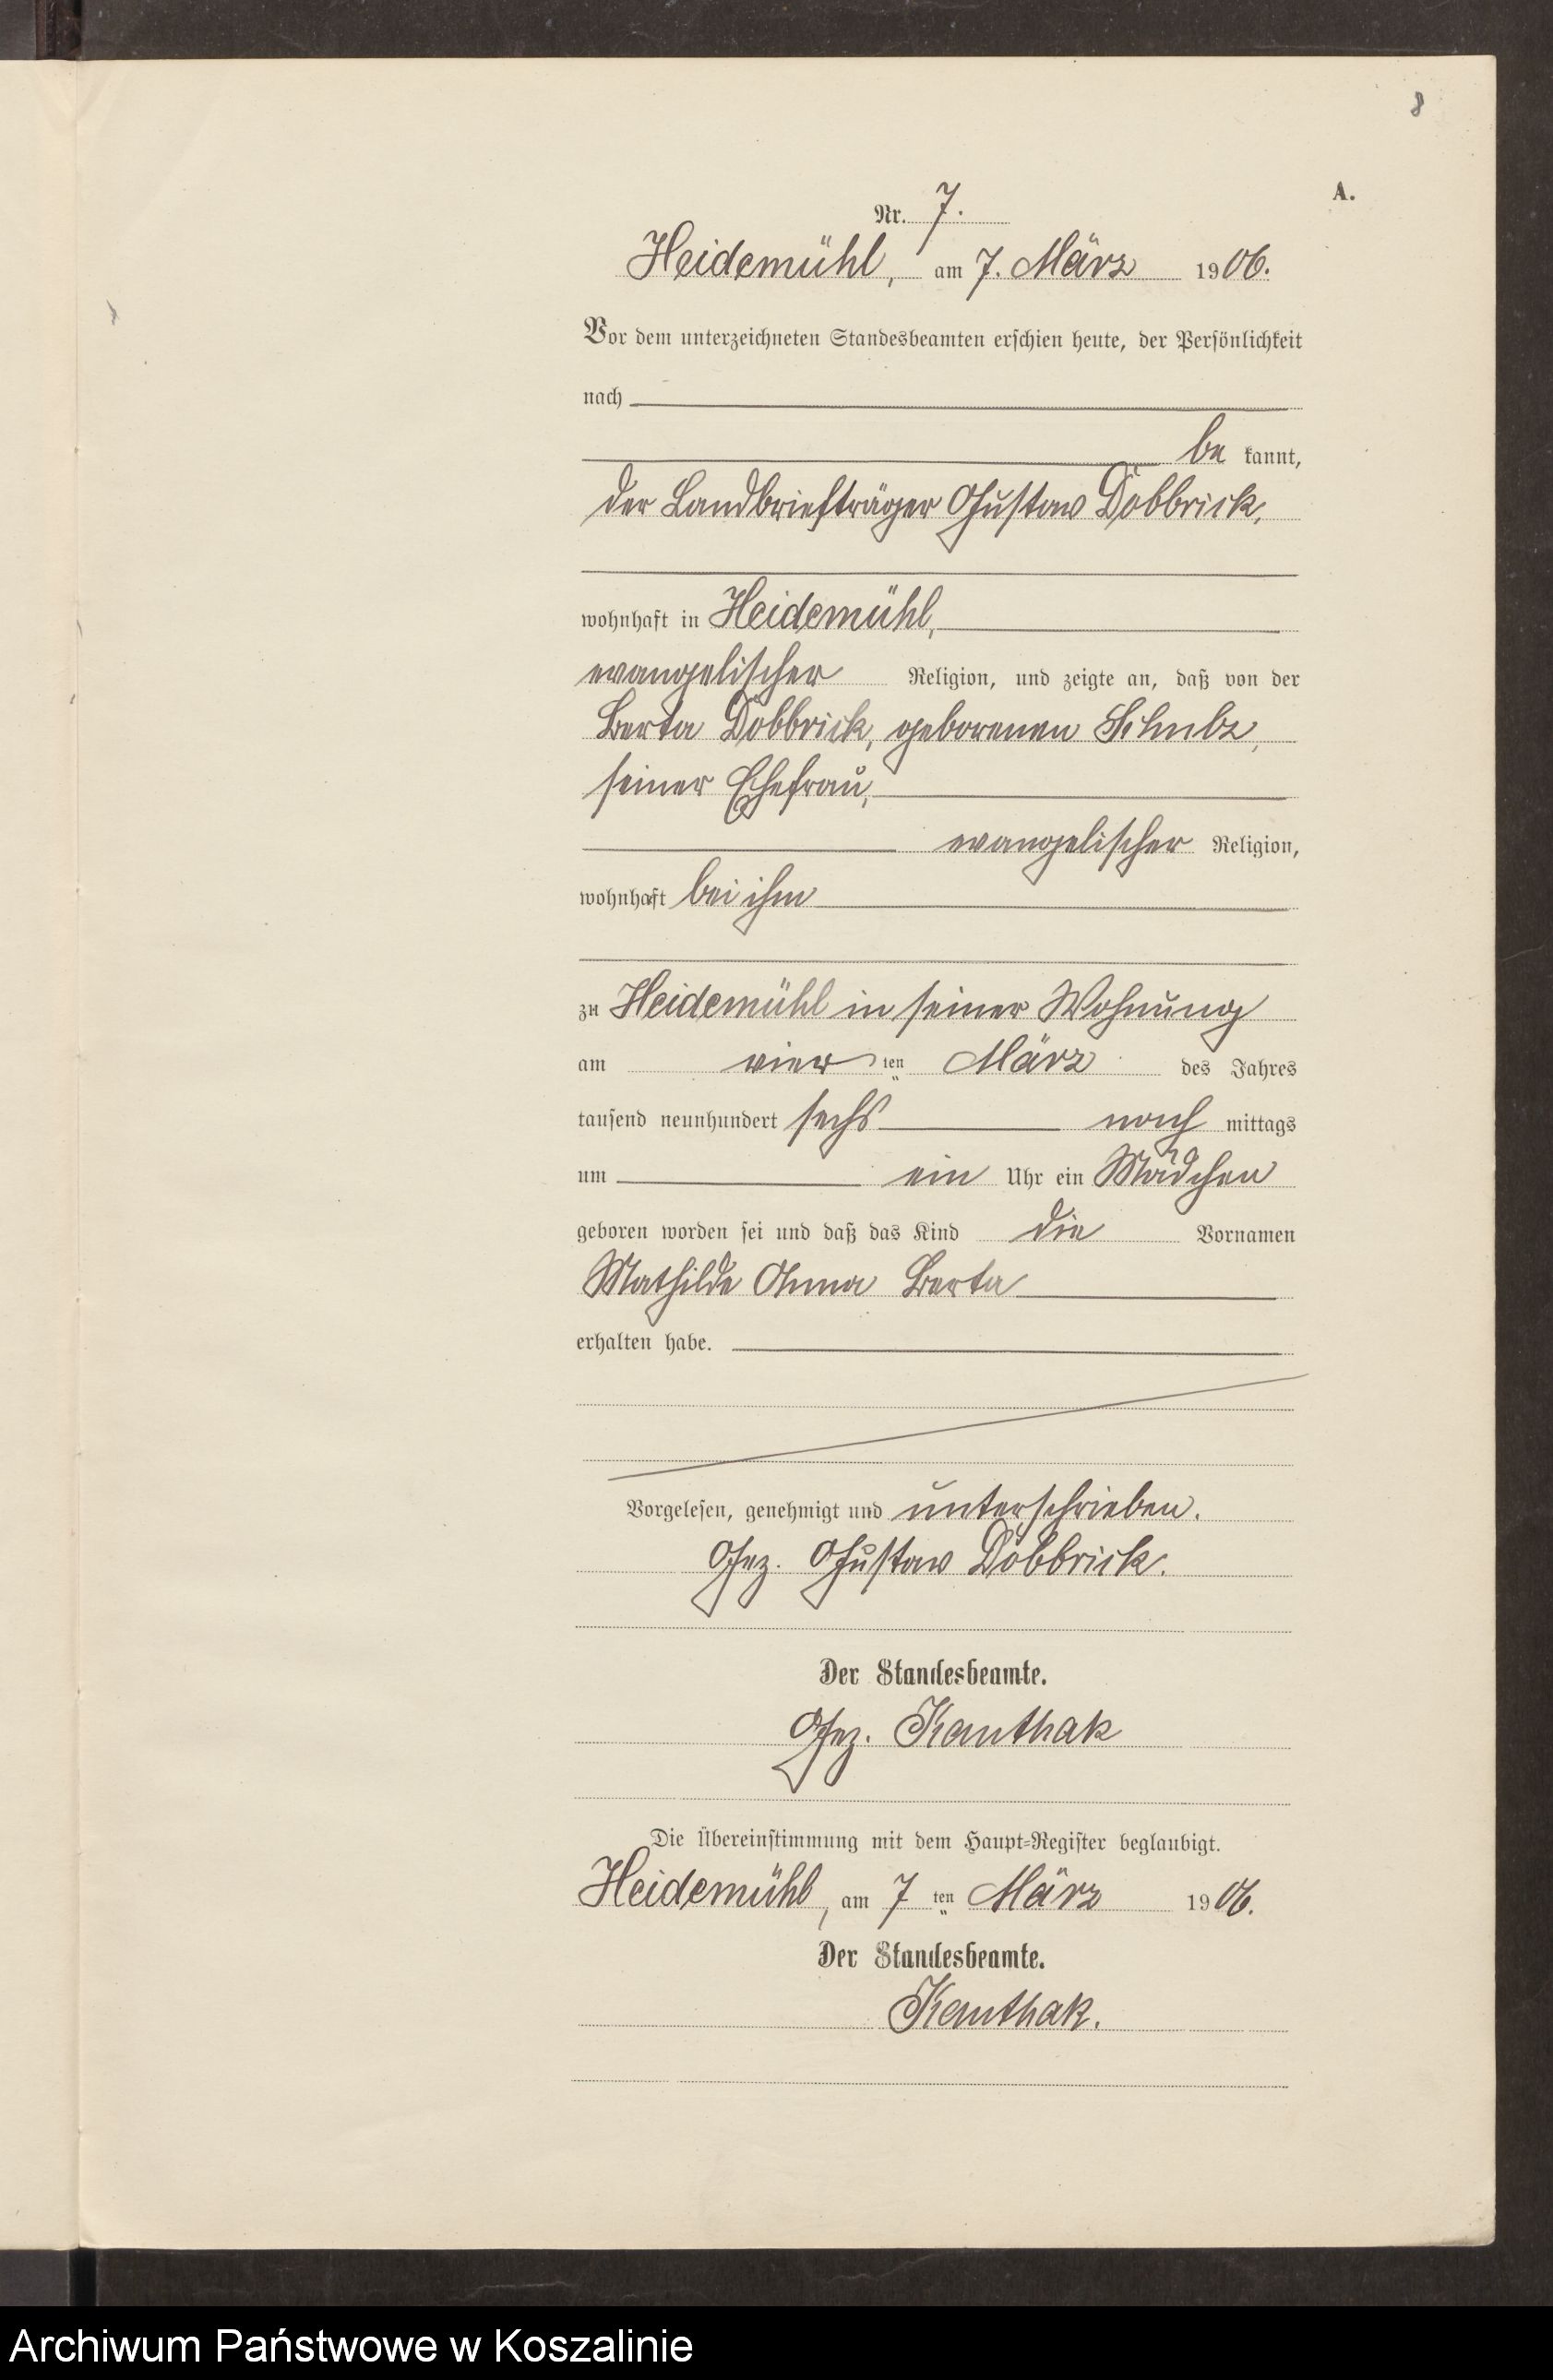 8
A.
Nr. 7.
Heidemühl, am 7. März 1906.
Vor dem unterzeichneten Standesbeamten erschien heute, der Persönlichkeit
nach
be kannt,
der Landbriefträger Gustav Döbbrick,
wohnhaft in Heidemühl,
evangelischer Religion, und zeigte an, daß von der
Berta Döbbrick, geborenen Schulz,
seiner Ehefrau,
evangelischer Religion,
wohnhaft bei ihm
zu Heidemühl in seiner Wohnung
am vier ten März des Jahres
tausend neunhundert sechs nach mittags
um ein Uhr ein Mädchen
geboren worden sei und daß das Kind die Vornamen
Mathilde Anna Berta
erhalten habe.
Vorgelesen, genehmigt und unterschrieben.
Gez. Gustav Döbbrick.
Der Standesbeamte.
Gez. Kauthak
Die Übereinstimmung mit dem Haupt-Register beglaubigt.
Heidemühl, am 7 ten März 1906.
Der Standesbeamte.
Kauthak.
Archiwum Państwowe w Koszalinie